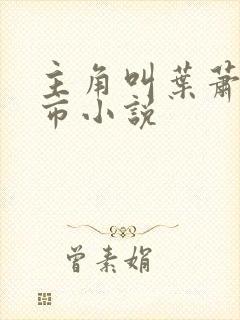 主角叫葉蕭
市小説
曾素娟